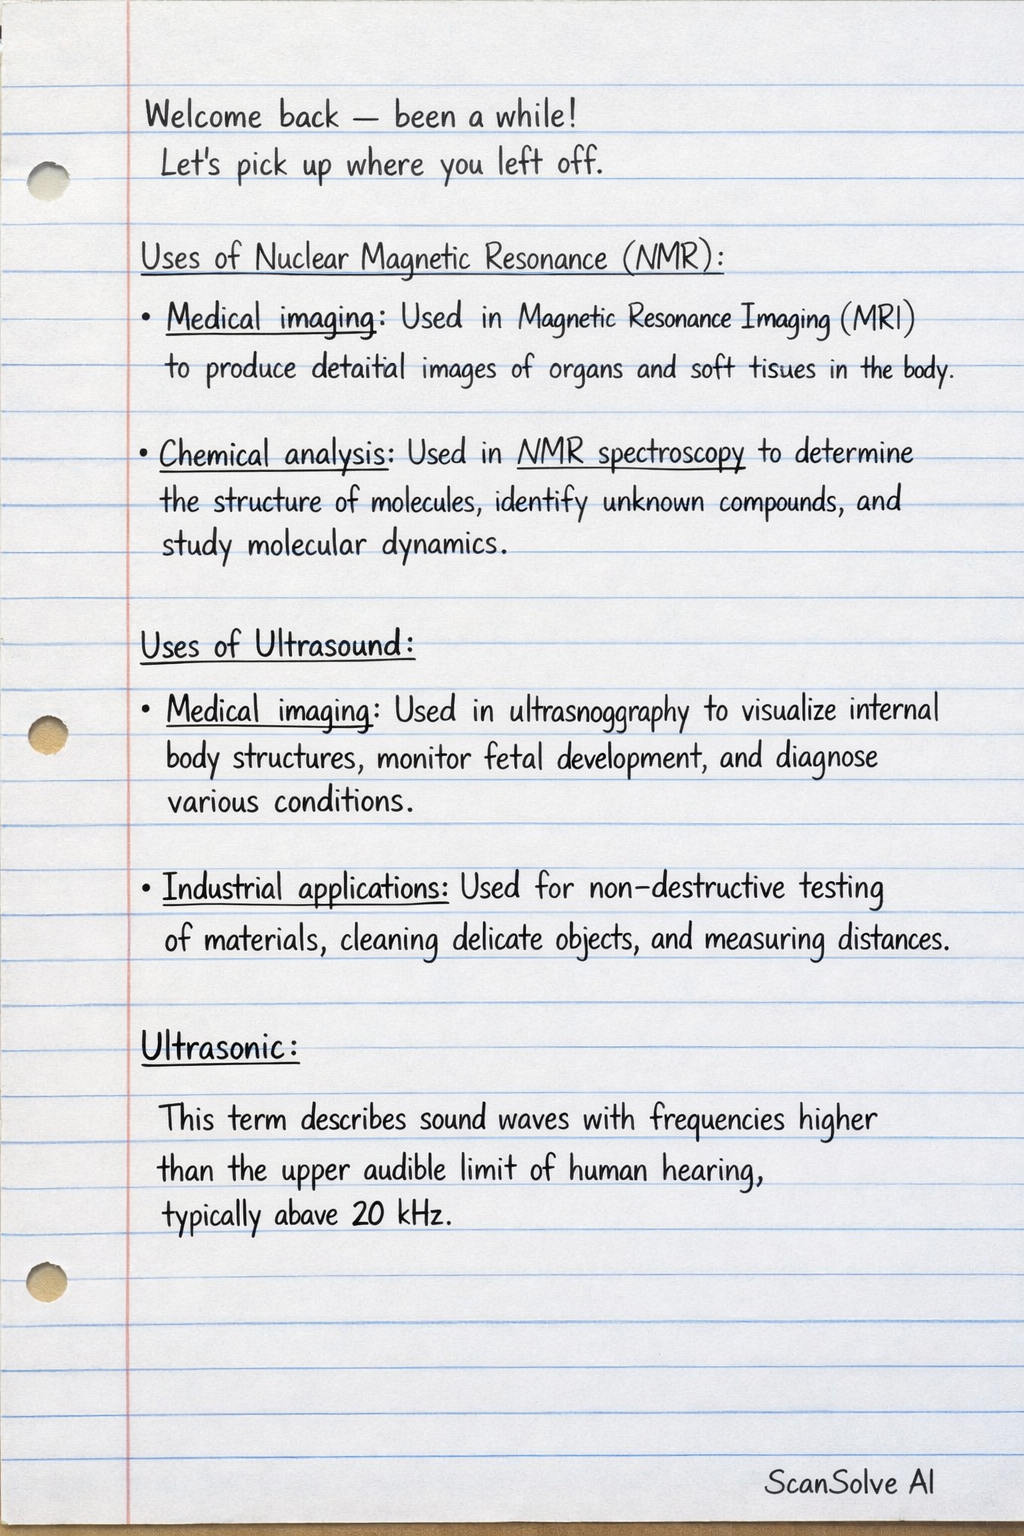 Welcome back — been a while!
Let's pick up where you left off.
Uses of Nuclear Magnetic Resonance (NMR):
• Medical imaging: Used in Magnetic Resonance Imaging (MRI)
to produce detaital images of organs and soft tisues in the body.
• Chemical analysis: Used in NMR spectroscopy to determine
the structure of molecules, identify unknown compounds, and
study molecular dynamics.
Uses of Ultrasound:
• Medical imaging: Used in ultrasnoggraphy to visualize internal
body structures, monitor fetal development, and diagnose
various conditions.
• Industrial applications: Used for non-destructive testing
of materials, cleaning delicate objects, and measuring distances.
Ultrasonic:
This term describes sound waves with frequencies higher
than the upper audible limit of human hearing,
typically abave 20 kHz.
ScanSolve AI